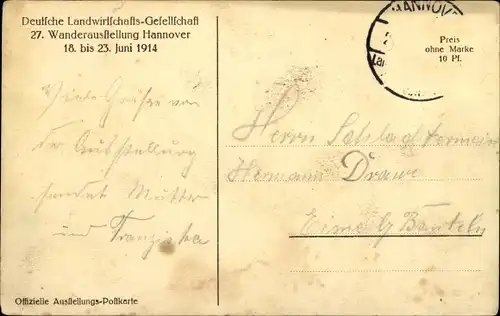 Deutsche Landwirtschafts-Gesellschaft
27. Wanderausstellung Hannover
18. bis 23. Juni 1914
HANNOV
Preis
ohne Marke
10 Pf.
Viele Grüße von
der Ausstellung
sendet Mutter
und Franziska
Herrn
Hermann Drawe
Eime b/ Banteln
Offizielle Ausstellungs-Postkarte